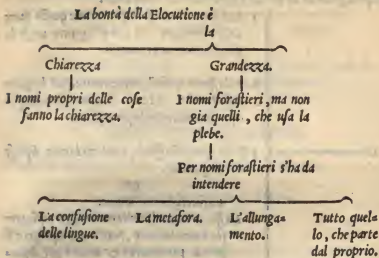 La bontà della Elocutione è
la
Chiarezza
Grandezza.
I nomi propri delle cose
fanno la chiarezza.
I nomi forastieri, ma non
gia quelli, che usa la
plebe.
Per nomi forastieri s'ha da
intendere
La confusione
delle lingue.
La metafora.
L'allunga=
mento.
Tutto quel=
lo, che parte
dal proprio.